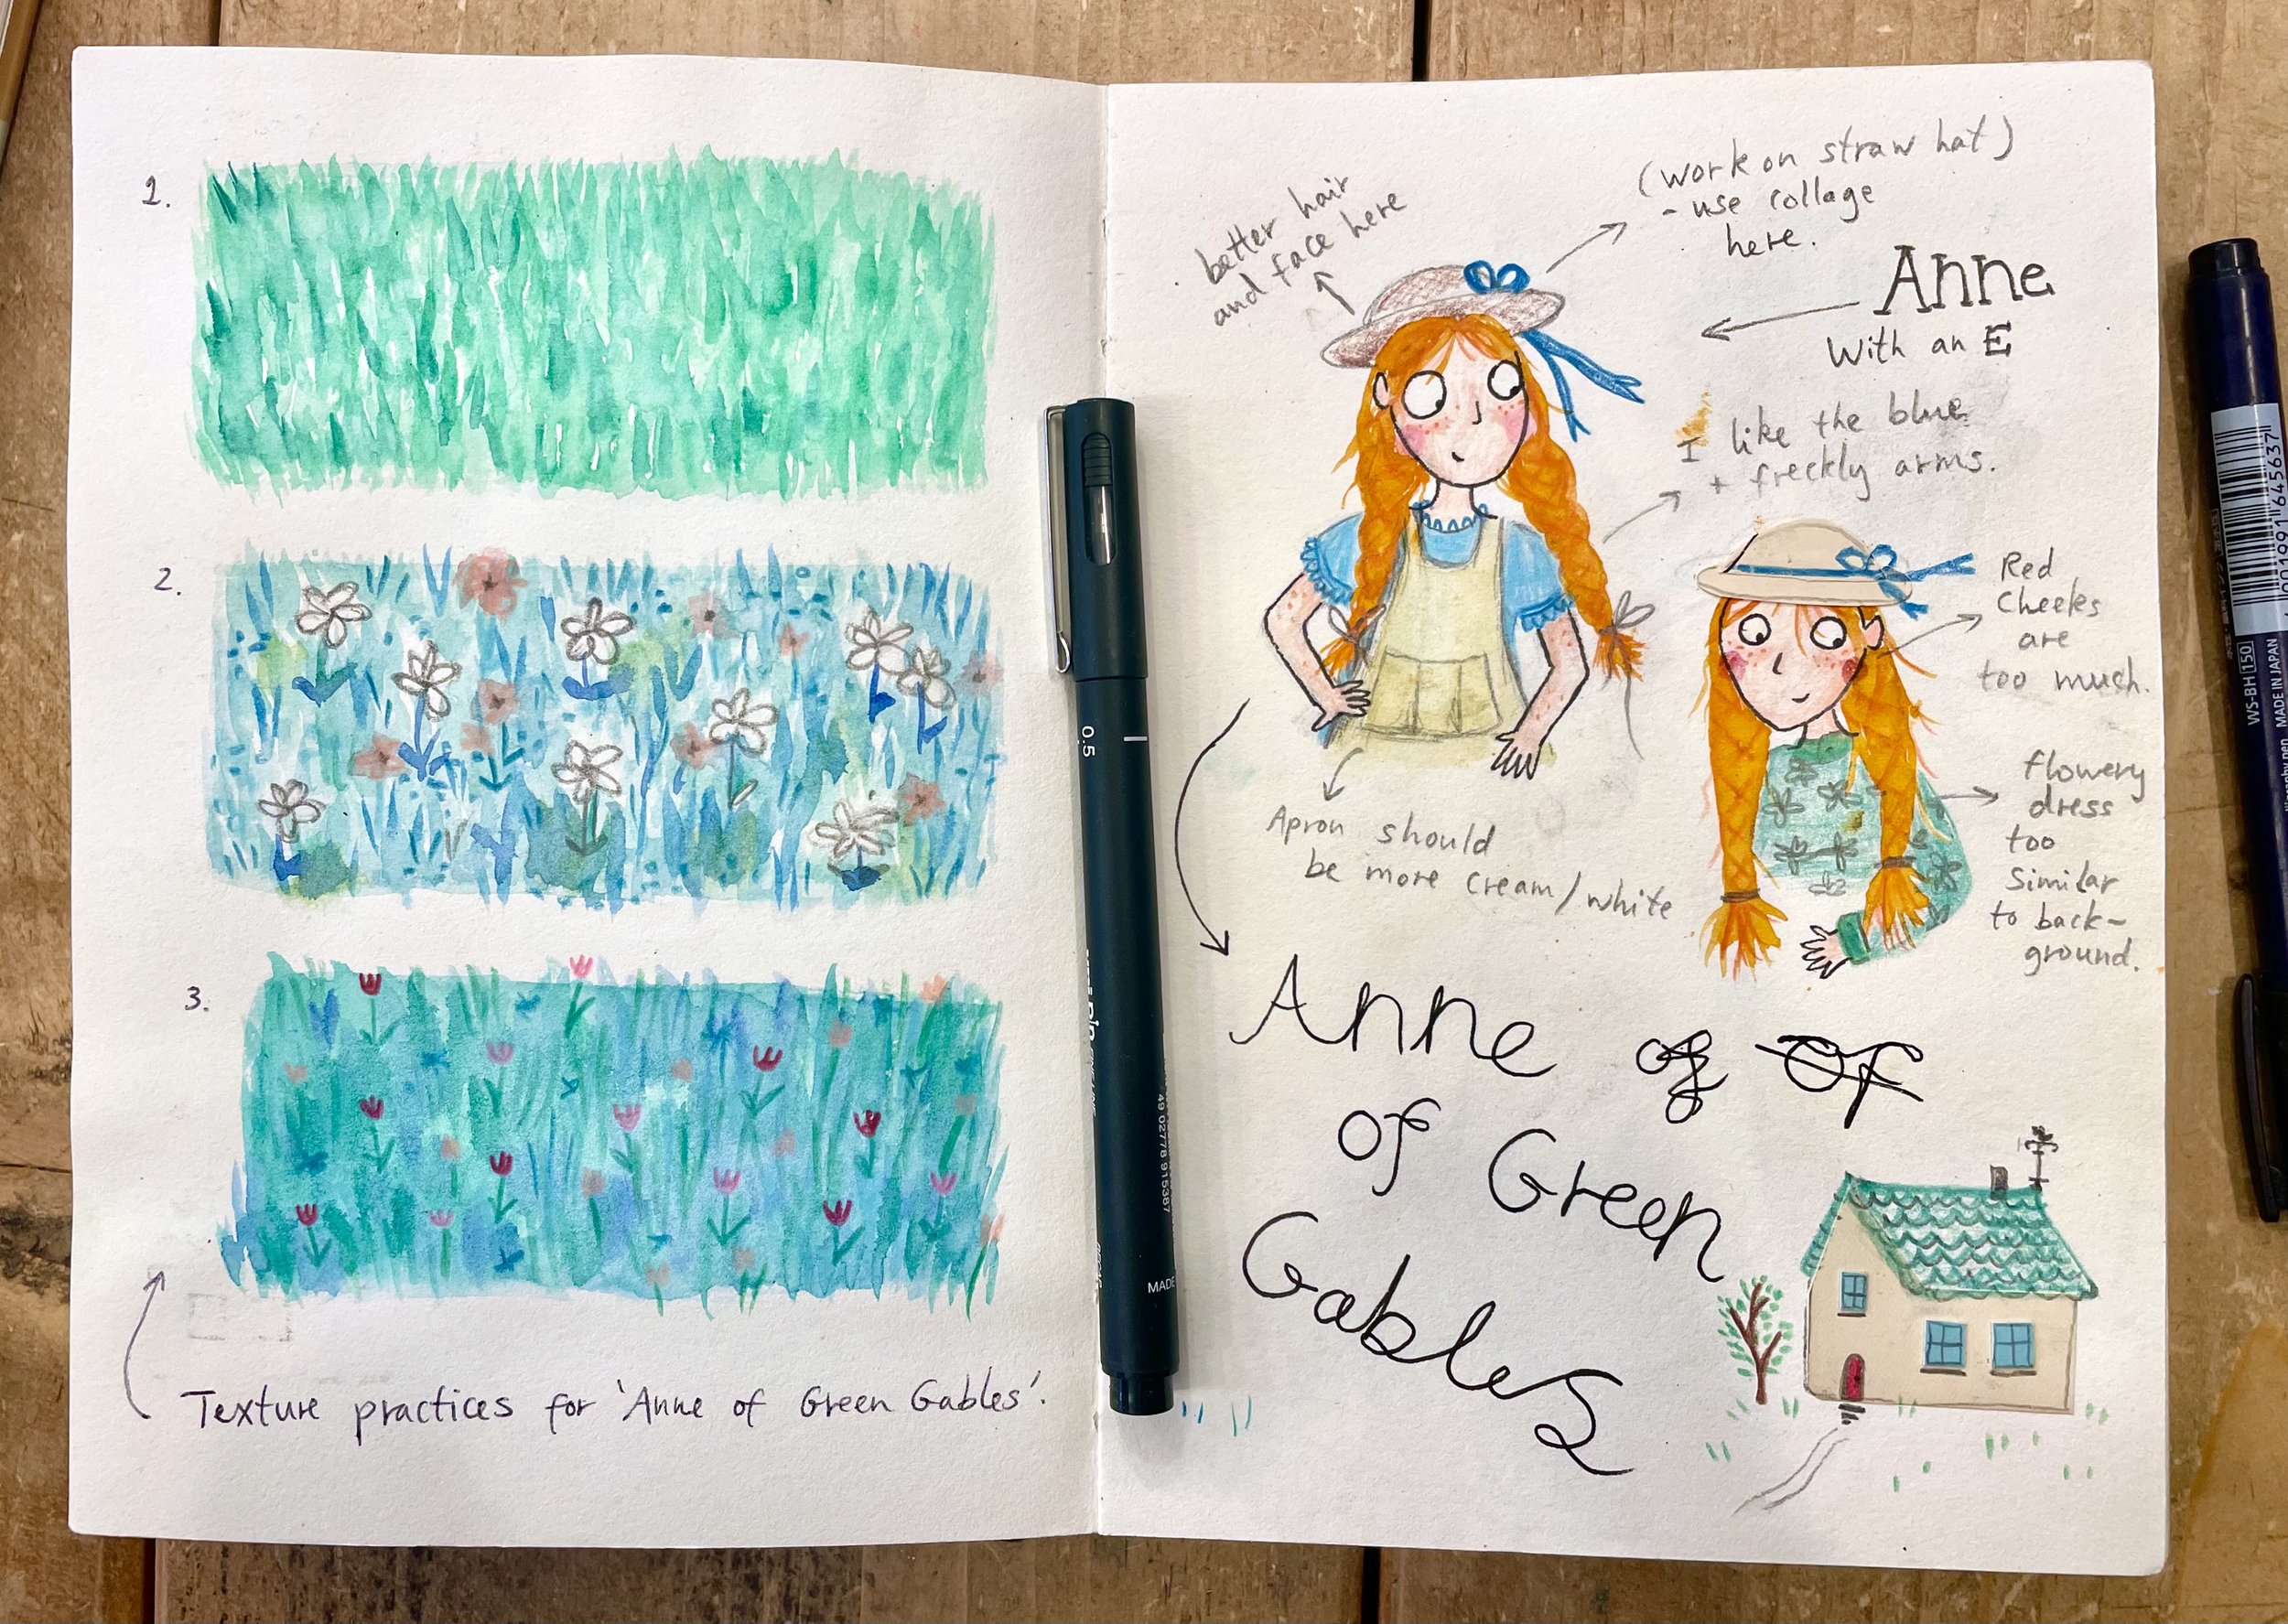 1.
2.
3.
Texture practices for 'Anne of Green Gables'.
better hair
and face here
(work on straw hat)
- use collage
here.
Anne
With an E
I like the blue
+ freckly arms.
Red
Cheeks
are
too much.
Apron should
be more cream/white
flowery
dress
too
similar
to back-
ground.
Anne of of
of Green
Gables
0.5
MADE
WS-BH 150
MADE IN JAPAN